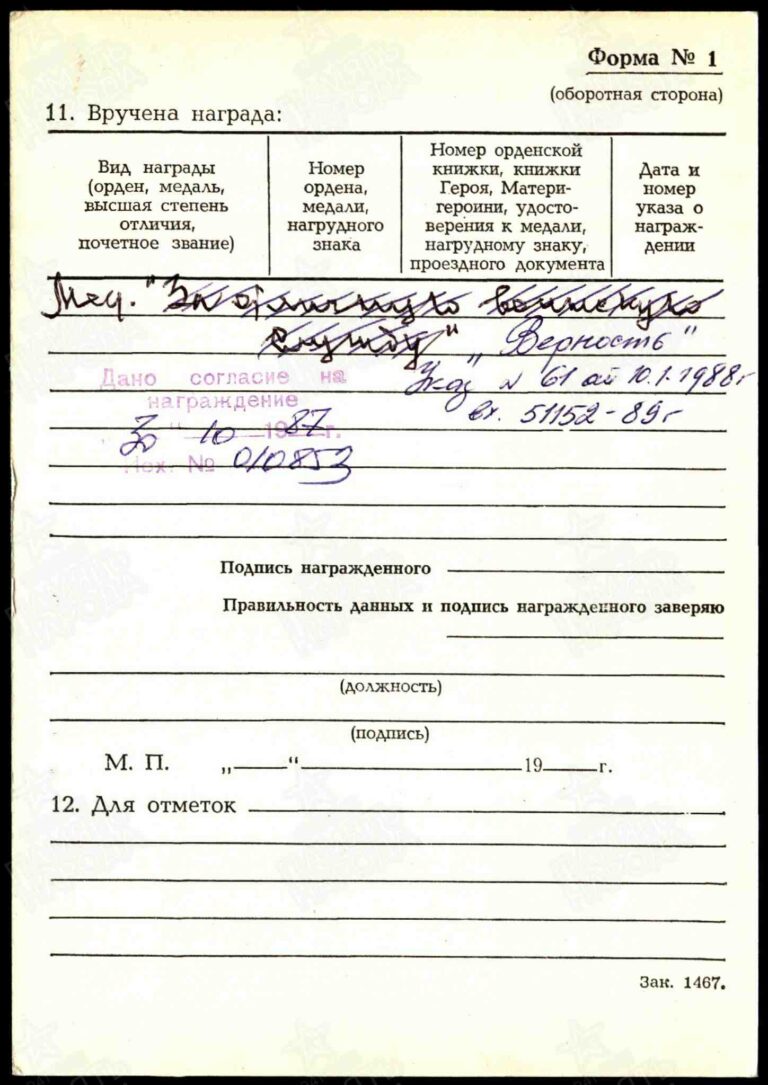 Форма № 1
(оборотная сторона)
11. Вручена награда:
Вид награды (орден, медаль, высшая степень отличия, почетное звание)
Номер ордена, медали, нагрудного знака
Номер орденской книжки, книжки Героя, Матери-героини, удостоверения к медали, нагрудному знаку, проездного документа
Дата и номер указа о награж-дении
Мед. "За отличную воинскую
службу" „Верность"
Дано согласие на
награждение
Указ № 61 от 10.1.1988г
вх. 51152-89г
30 " 10 1987 г.
Исх. № 010853
Подпись награжденного
Правильность данных и подпись награжденного заверяю
(должность)
(подпись)
М. П. „ “ 19 г.
12. Для отметок
Зак. 1467.